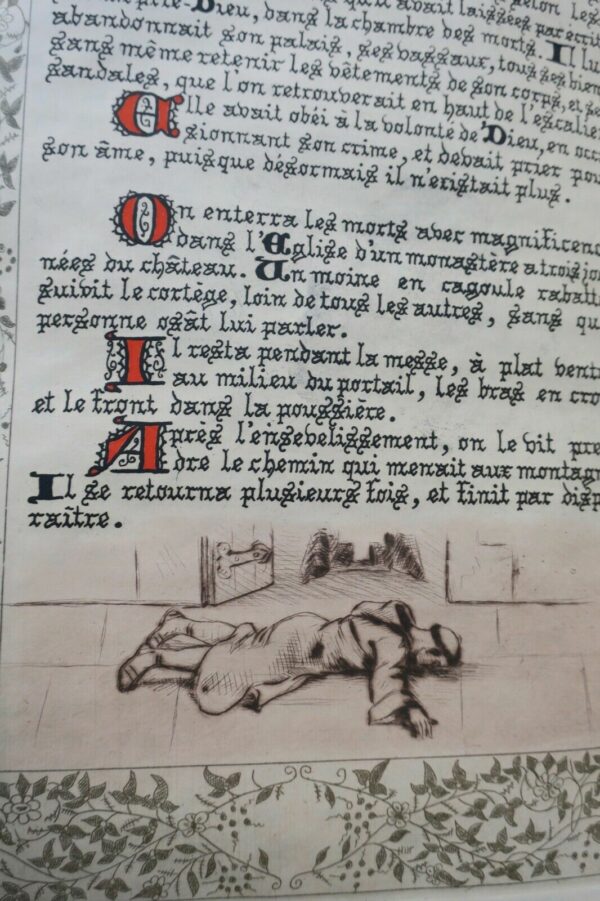 selon les
qu'il avait laissées par écrit
prie-Dieu, dans la chambre des morts. Il lu
abandonnait son palais, ses vassaux, tous ses bien
sans même retenir les vêtements de son corps, et se
sandales, que l'on retrouverait en haut de l'escalier
Elle avait obéi à la volonté de Dieu, en occ
sionnant son crime, et devait prier pou
son âme, puisque désormais il n'existait plus.
On enterra les morts avec magnificenc
dans l'Eglise d'un monastère a trois jo
nées du château. Un moine en cagoule rabatt
suivit le cortège, loin de tous les autres, sans qu
personne osât lui parler.
Il resta pendant la messe, à plat ventr
au milieu du portail, les bras en cro
et le front dans la poussière.
Après l'ensevelissement, on le vit pre
dre le chemin qui menait aux montagn
Il se retourna plusieurs fois, et finit par disp
raître.